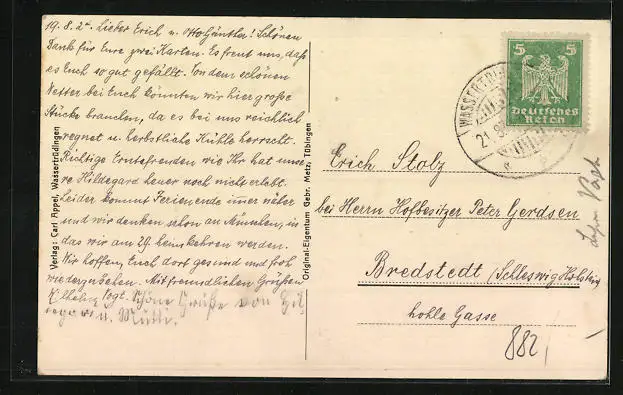 19. 8. 2 Lieber Erich u. Otto Günther! Schönen
Dank für Eure zwei Karten. Es freut uns, daß
es Euch so gut gefällt. Von dem schönen
Wetter bei Euch könnten wir hier große
Stücke brauchen, da es bei uns reichlich
regnet u. herbstliche Kühle herrscht.
Richtige Erntefreuden wie Ihr hat unse
re Hildegard heuer noch nicht erlebt.
Leider kommt Ferienende immer näher
und wir denken schon an München, in
das wir am 29. heimkehren werden.
Wir hoffen, Euch dort gesund und froh
wiederzusehen. Mit freundlichen Grüßen
Wilhelm Vogt. Schöne Grüße von Hil
degard u. Mutti.
Verlag: Carl Appel, Wassertrüdingen
Original-Eigentum Gebr. Metz, Tübingen
5 5
Deutsches
Reich
WASSERTRÜ
21.
Erich Stolz
bei Herrn Hofbesitzer Peter Gerdsen
Bredstedt (Schleswig Holstein
hohle Gasse
882